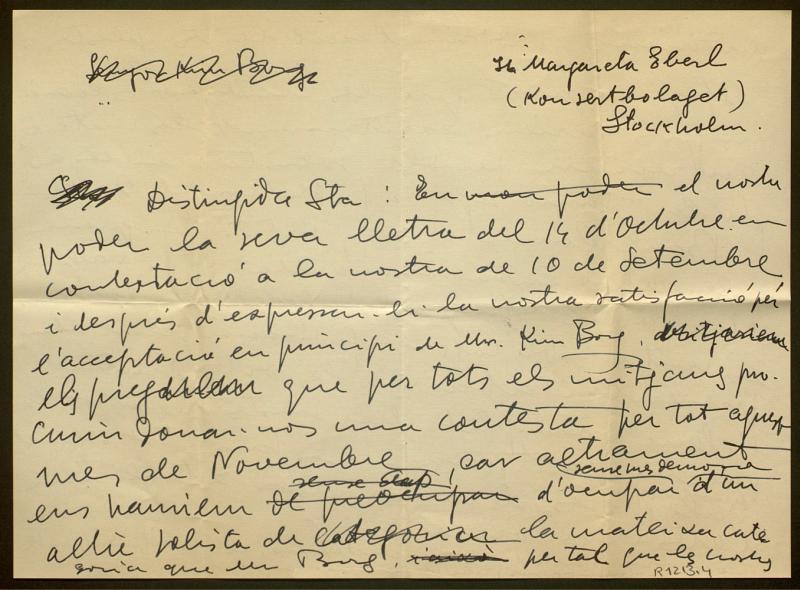 Senyor Kim Borg
Sta Margareta Eberl
(Konsertbolaget)
Stockholm.
Distingida Sta: En mon poder el nostre
poder la seva lletra del 14 d'Octubre en
contestació a la nostra de 10 de Setembre
i després d'expressar-li la nostra satisfacció per
l'acceptació en principi de Mr. Kim Borg,
els que per tots els mitjans pro-
curin donar-nos una contesta per tot aquest
mes de Novembre, car altrament
sense més demora
ens hauriem de preocupar d'ocupar d'un
altre solista de categoria la mateixa cate
goria que en Borg, per tal que les nostres
R1213.4